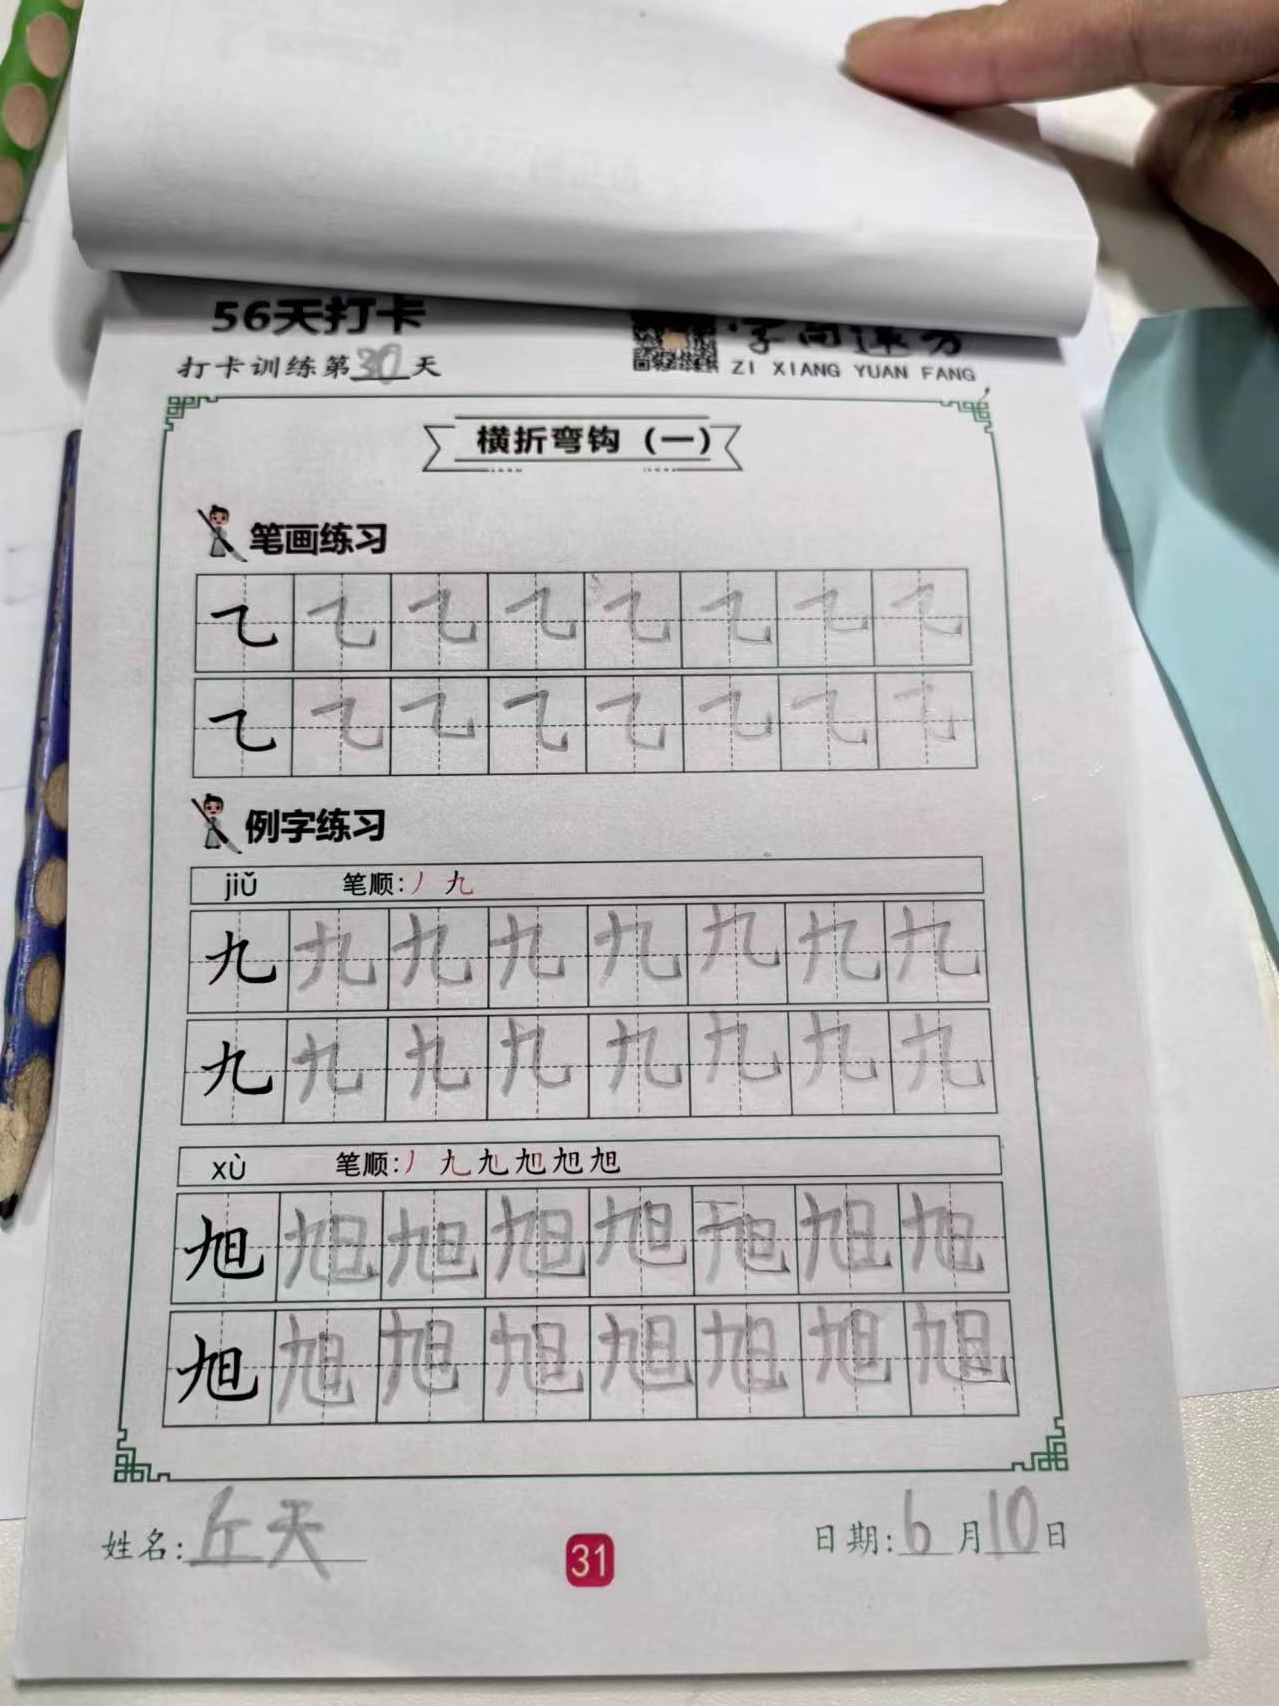 56天打卡
打卡训练第30天
ZI XIANG YUAN FANG
横折弯钩（一）
笔画练习
㇈ ㇈ ㇈ ㇈ ㇈ ㇈ ㇈ ㇈
㇈ ㇈ ㇈ ㇈ ㇈ ㇈ ㇈ ㇈
例字练习
jiǔ 笔顺:丿 九
九 九 九 九 九 九 九 九
九 九 九 九 九 九 九 九
xù 笔顺:丿 九 旭 旭 旭 旭
旭 旭 旭 旭 旭 旭 旭 旭
旭 旭 旭 旭 旭 旭 旭 旭
姓名:丘天 31 日期:6月10日